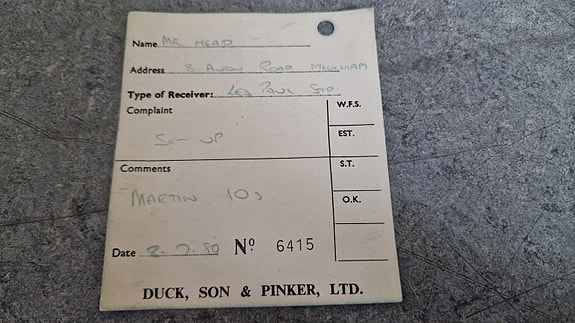 Name MR HEAD
Address 8 AVON ROAD MELKSHAM
Type of Receiver: LES PAUL STD
Complaint
W.F.S.
SET UP
EST.
Comments
S.T.
MARTIN 10s
O.K.
Date 8.7.80 Nº 6415
DUCK, SON & PINKER, LTD.